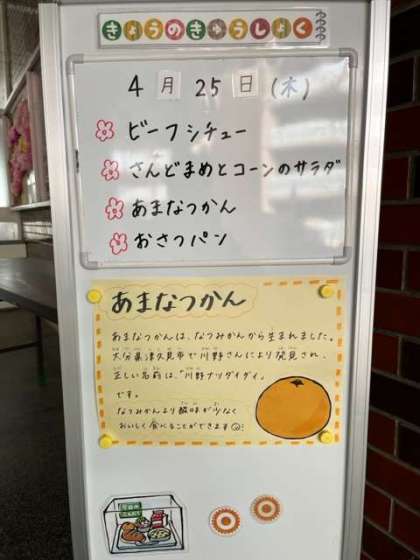 きょうのきゅうしょく
4月25日(木)
ビーフシチュー
さんどまめとコーンのサラダ
あまなつかん
おさつパン
あまなつかん
あまなつかんは、なつみかんから生まれました。
大分県津久見市で川野さんにより発見され、
正しい名前は、「川野ナツダイダイ」
です。
なつみかんより酸味が少なく
おいしく食べることができます